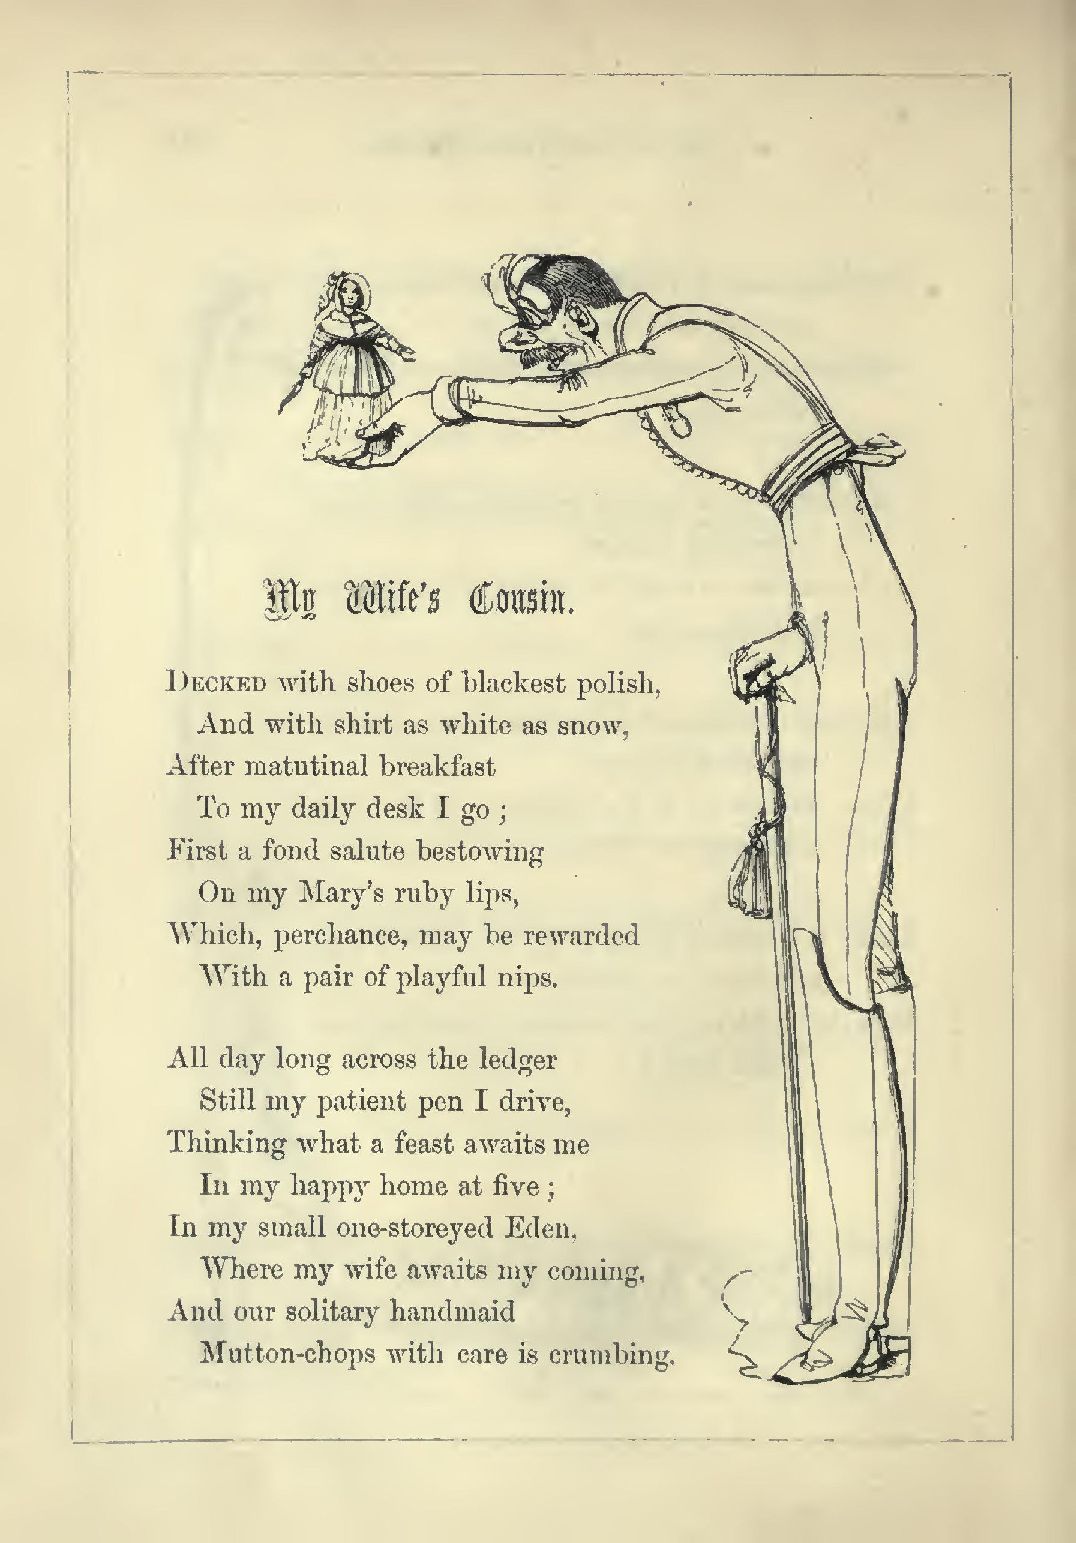 My Wife's Cousin.
DECKED with shoes of blackest polish,
And with shirt as white as snow,
After matutinal breakfast
To my daily desk I go ;
First a fond salute bestowing
On my Mary's ruby lips,
Which, perchance, may be rewarded
With a pair of playful nips.
All day long across the ledger
Still my patient pen I drive,
Thinking what a feast awaits me
In my happy home at five ;
In my small one-storeyed Eden,
Where my wife awaits my coming,
And our solitary handmaid
Mutton-chops with care is crumbing.